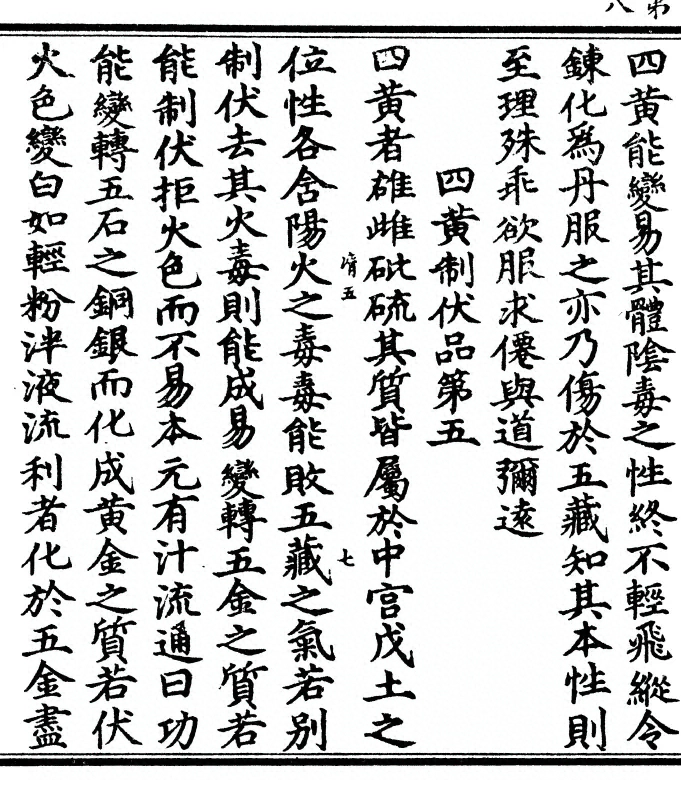 四黄能變易其體陰毒之性終不輕飛縱令
鍊化爲丹服之亦乃傷於五藏知其本性則
至理殊乖欲服求僊與道彌遠
四黄制伏品第五
四黄者雄雌砒硫其質皆屬於中宫戊土之
位性各含陽火之毒毒能敗五藏之氣若别
制伏去其火毒則能成易變轉五金之質若
能制伏拒火色而不易本元有汁流通曰功
能變轉五石之銅銀而化成黄金之質若伏
火色變白如輕粉津液流利者化於五金盡
五
七